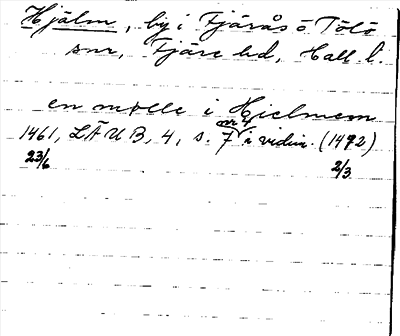 Hjälm, by i Fjärås o Tölö
snr, Fjäre hd, Hall l.
en mølle i Hielmem
nr 4
1461, LÄUB, 4, s. 7 i vidim. (1492)
23/6 2/3